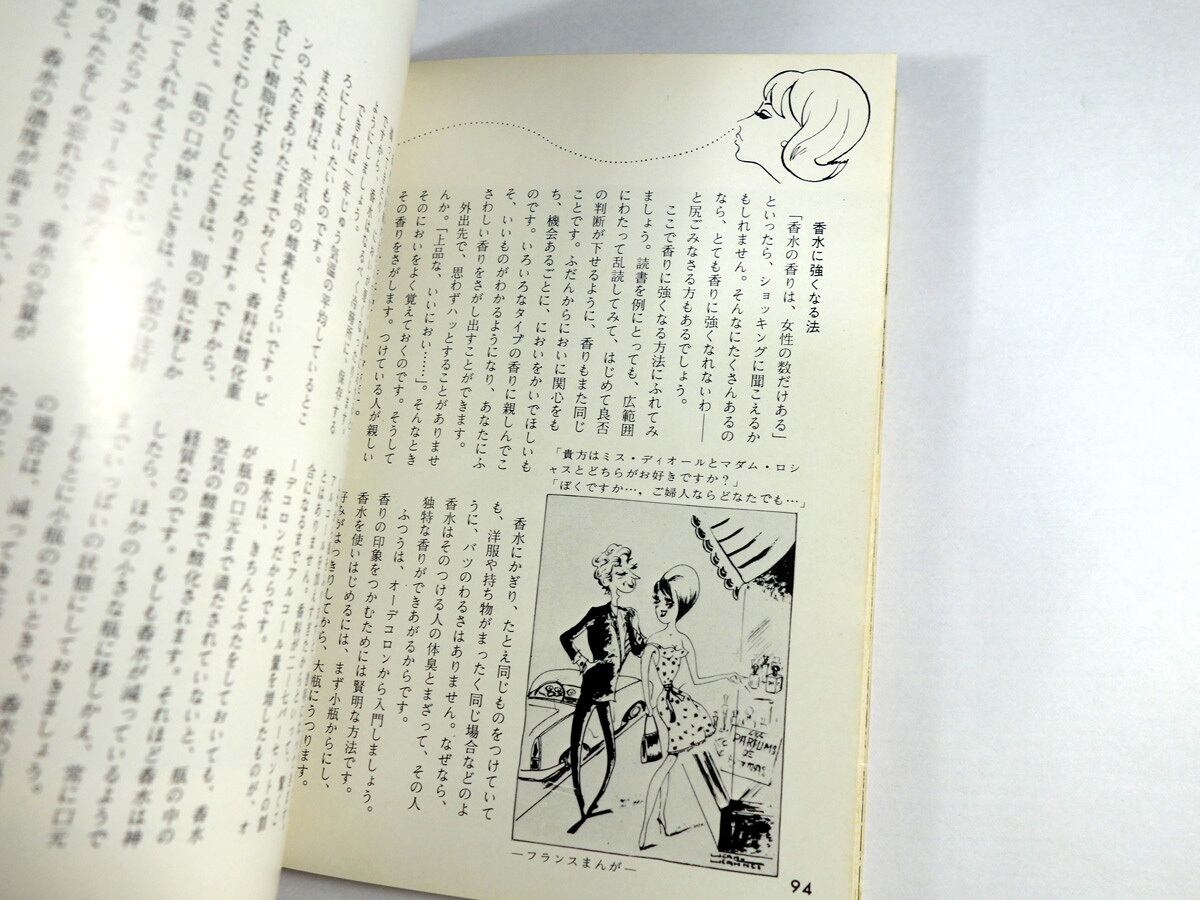 香水に強くなる法
「香水の香りは、女性の数だけある」
といったら、ショッキングに聞こえるか
もしれません。そんなにたくさんあるの
なら、とても香りに強くなれないわ――
と尻ごみなさる方もあるでしょう。
ここで香りに強くなる方法にふれてみ
ましょう。読書を例にとっても、広範囲
にわたって乱読してみて、はじめて良否
の判断が下せるように、香りもまた同じ
ことです。ふだんからにおいに関心をも
ち、機会あるごとに、においをかいでほしいも
のです。いろいろなタイプの香りに親しんでこ
そ、いいものがわかるようになり、あなたにふ
さわしい香りをさがし出すことができます。
外出先で、思わずハッとすることがありませ
んか。「上品な、いいにおい……」。そんなとき
そのにおいをよく覚えておくのです。そうして
その香りをさがします。つけている人が親しい
「貴方はミス・ディオールとマダム・ロシ
ャスとどちらがお好きですか？」
「ぼくですか…，ご婦人ならどなたでも…」
LES
PARFUMS
DE
―フランスまんが―
香水にかぎり、たとえ同じものをつけていて
も、洋服や持ち物がまったく同じ場合などのよ
うに、バツのわるさはありません。なぜなら、
香水はそのつける人の体臭とまざって、その人
独特な香りができあがるからです。
ふつうは、オーデコロンから入門しましょう。
香りの印象をつかむためには賢明な方法です。
香水を使いはじめるには、まず小瓶からにし、
好みがはっきりしてから、大瓶にうつります。
94
ようにしましょう。
できれば一年じゅう気温の平均しているとこ
ろにしまいたいものです。
また香料は、空気中の酸素もきらいです。ビ
ンのふたをあけたままでおくと、香料は酸化重
合して樹脂化することがあります。ですから、
ふたをこわしたりしたときは、別の瓶に移しか
ること。（瓶の口が狭いときは、小型の注射
使って入れかえてください）
のふたをしめ忘れたり、香の分量が
と、香水の濃度が高まって、
ーデコロンだからです。
香水は、きちんとふたをしておいても、香水
が瓶の口元まで満たされていないと、瓶の中の
空気の酸素で酸化されます。それほど香水は神
経質なのです。もしも香水が減っているようで
したら、ほかの小さな瓶に移しかえ、常に口元
までいっぱいの状態にしておきましょう。
手もとに小瓶のないときや、香水の
の場合は、減ってきた